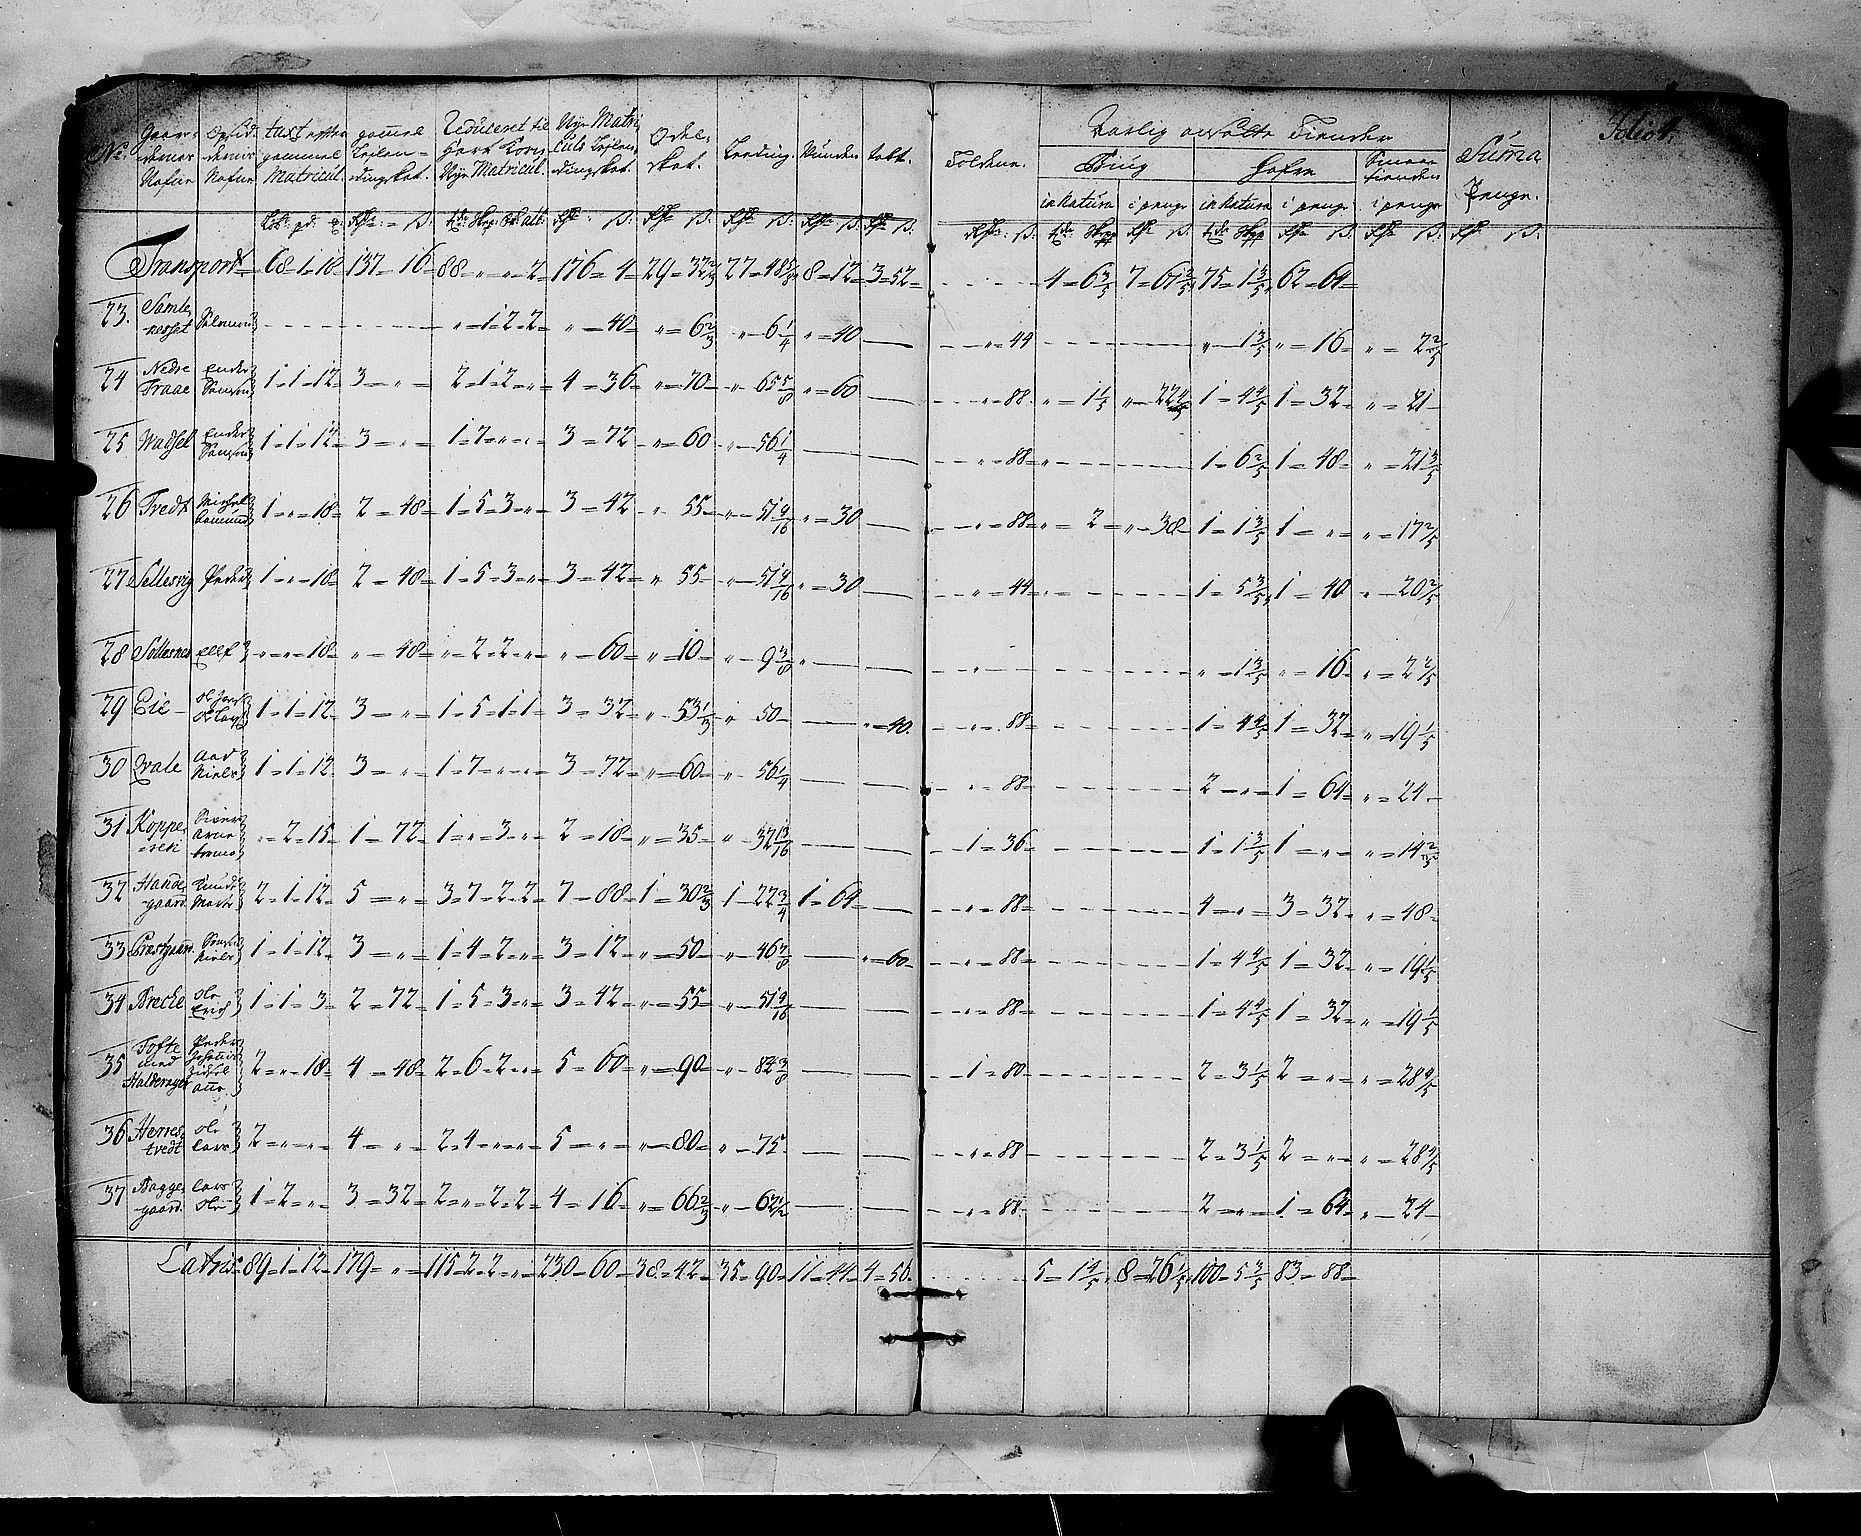 Folio 4.
No. Gaar- dernes Nafne | taxt efter gammel Matricul. | gammel Leilen- dingskat. | Reduceret til Hart Korn Nye Matricul. | Nye Matri- culs Leilen- dingskat. | Odel- skat. | Leeding. | Wunden | tobt. | Foldene. | Aarlig ansatte Tiender | Suma Penge.
Biug | Hafre | Smaae tienden
in Natura | i penge | in Natura | i penge | i penge
Transport 68-1-18 137-16 88-"-"-2 176-4 29-32 2/3 27-48 5/8 8-12 3-52 4-6 3/5 7-61 2/5 75-1 3/5 62-64
23. Salomon "-1-2-2 "-40 "-6 2/3 "-6 1/4 "-40 "-44 "-1 3/5 "-16 "-2 2/5
24 Nedre Fraae Ender Samson 1-1-12 3-" 2-1-2-" 4-36 "-70 "-65 5/8 "-60 "-88 "-1 1/5 "-22 4/5 1-4 4/5 1-32 "-21
25 Wadsel Ender Samson 1-1-12 3-" 1-7-"-" 3-72 "-60 "-56 1/4 "-88 1-6 2/5 1-48 "-21 3/5
26 Tvedt 1-"-18 2-48 1-5-3-" 3-42 "-55 "-51 9/16 "-30 "-88 "-2 "-38 1-1 3/5 1-" "-17 2/5
27 Sellesvig Peder 1-"-18 2-48 1-5-3-" 3-42 "-55 "-51 9/16 "-30 "-44 1-5 3/5 1-40 "-20 2/5
28 Sollesnes Ellef "-"-18 "-48 "-2-2-" "-60 "-10 "-9 3/8 "-1 3/5 "-16 "-2 2/5
29 Eie 1-1-12 3-" 1-5-1-1 3-32 "-53 1/3 "-50 "-40 "-88 1-4 4/5 1-32 "-19 1/5
30 Qvale Aad Niels 1-1-12 3-" 1-7-"-" 3-72 "-60 "-56 1/4 "-88 2-" 1-64 "-24
31 Koppe- Siver Arne "-2-15 1-72 1-"-3-" 2-18 "-35 "-32 13/16 1-36 1-1 3/5 1-" "-14 2/5
32 Hande- gaard Knudt 2-1-12 5-" 3-7-2-2 7-88 1-30 2/3 1-22 3/4 1-64 "-88 4-" 3-32 "-48
33 Præstgaard Niels 1-1-12 3-" 1-4-2-" 3-12 "-50 "-46 7/8 "-60 "-88 1-4 4/5 1-32 "-19 1/5
34 Breche Ole Erich 1-1-3 2-72 1-5-3-" 3-42 "-55 "-51 9/16 "-88 1-4 4/5 1-32 "-19 1/5
35 Tofte med Halderager Peder Johannes 2-"-18 4-48 2-6-2-" 5-60 "-90 "-84 3/8 1-80 2-3 1/5 2-" "-28 4/5
36 Herres- tvedt Ole Lars 2-"-" 4-" 2-4-"-" 5-" "-80 "-75 "-88 2-3 1/5 2-" "-28 4/5
37 Bagge- gaard Lars Ole 1-2-" 3-32 2-"-2-2 4-16 "-66 2/3 "-62 1/2 "-88 2-" 1-64 "-24
Latus 89-1-12 179-" 115-2-2-" 230-60 38-42 35-90 11-44 4-56 5-1 4/5 8-26 1/5 100-5 3/5 83-88